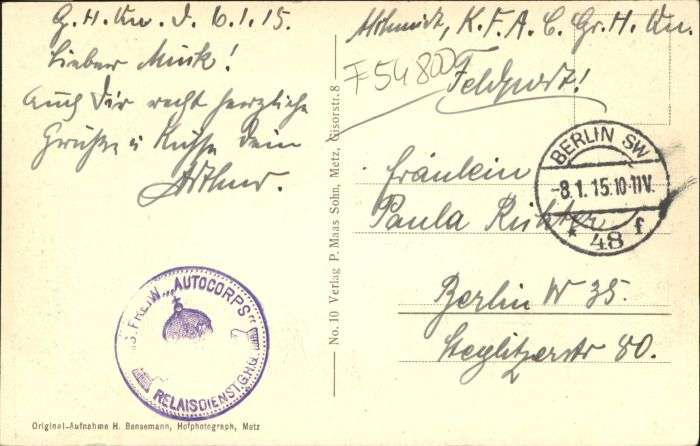 G. H. Qu. d. 6.1.15.
Lieber Muck!
Auch Dir recht herzliche
Grüße u Küsse Dein
Arthur.
K. F. A. C. Gr. H. Qu.
F 54800
Feldpost!
Fräulein
Paula Richter
Berlin W 35.
Steglitzerstr 80.
BERLIN SW
-8.1.15.10-11V.
* 48 f
No. 10 Verlag P. Maas Sohn, Metz, Gisorstr. 8
FREIW. „AUTOCORPS“
RELAISDIENST G.H.Q.
Original-Aufnahme H. Bensemann, Hofphotograph, Metz